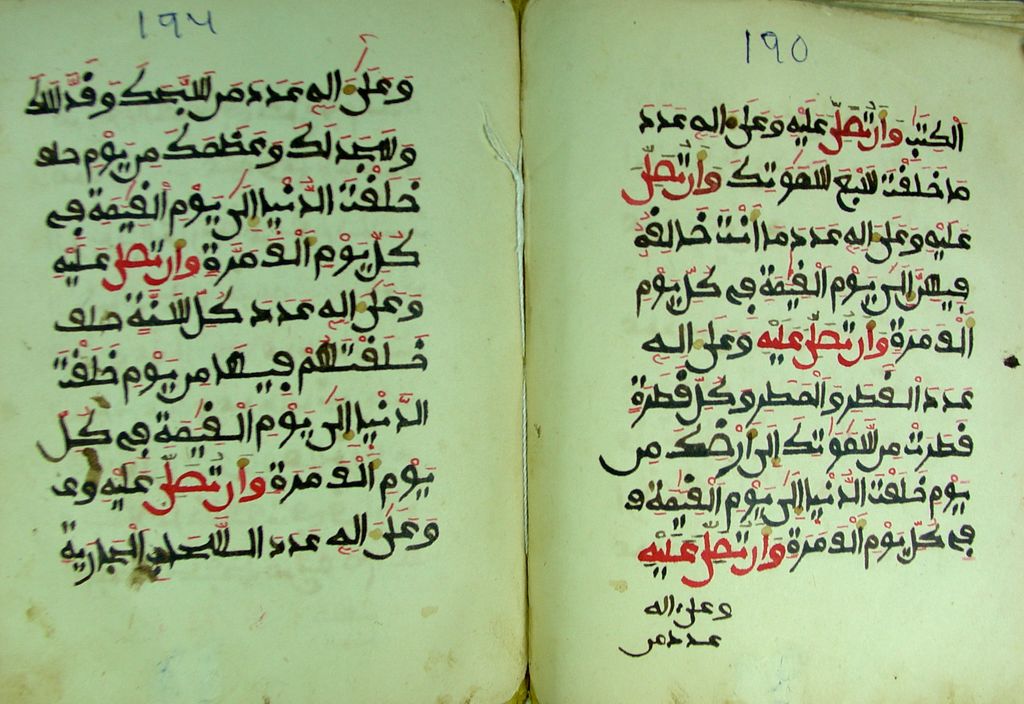 ١٩٥
الكتب وان تصل عليه وعلى اله عدد
ما خلقت في سبع سموتك وان تصل
عليه وعلى اله عدد ما انت خالفه
فيهن الى يوم القيمة في كل يوم
الف مرة وان تصل عليه وعلى اله
عدد القطر والمطر وكل قطرة
قطرت من سموتك الى ارضك من
يوم خلقت الدنيا الى يوم القيمة
في كل يوم الف مرة وان تصل عليه
وعلى اله
عدد من
وعلى اله عدد من سبحك وقدسك
وسجد لك وعظمك من يوم
خلقت الدنيا الى يوم القيمة في
كل يوم الف مرة وان تصل عليه
وعلى اله عدد كل سنة
خلقتهم فيها من يوم خلقت
الدنيا الى يوم القيمة في كل
يوم الف مرة وان تصل عليه
وعلى اله عدد السحاب الجارية